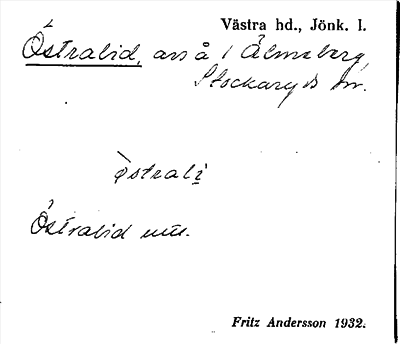 Västra hd., Jönk. l.
Östralid, avs å / Älmeberg,
Stockaryds sn.
òstralị
Östralid utt.
Fritz Andersson 1932.